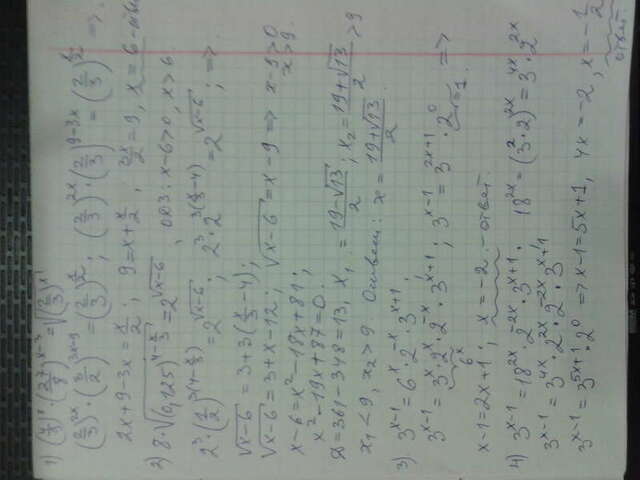 1) (4/9)^x · (27/8)^(x-3) = √(2/3)^x
(2/3)^2x · (3/2)^(3x-9) = (2/3)^(x/2), (2/3)^2x · (2/3)^(9-3x) = (2/3)^(x/2) =>
2x+9-3x = x/2; 9 = x + x/2, 3x/2 = 9, x = 6 - ответ
2) 8·√(0,125)^(4-x/3) = 2^√(x-6), ОДЗ: x-6>0, x>6.
2^3·(1/2)^3(4-x/3) = 2^√(x-6); 2·2^3(x/3-4) = 2^√(x-6); =>
√(x-6) = 3+3(x/3-4);
√(x-6) = 3+x-12; √(x-6) = x-9 => x-9>0 x>9.
x-6 = x²-18x+81;
x²-19x+87=0;
D=361-348=13, x₁ = (19-√13)/2; x₂ = (19+√13)/2 >9
x₁<9, x₂>9 Ответ: x = (19+√13)/2
3) 3^(x-1) = 6^x · 2^-x · 3^(x+1);
3^(x-1) = 3^x · 2^x · 2^-x · 3^(x+1); 3^(x-1) = 3^(2x+1) · 2^0 =>
6^x =1.
x-1=2x+1; x=-2 - ответ
4) 3^(x-1) = 18^2x · 2^-2x · 3^(x+1); 18^2x = (3^2·2)^2x = 3^4x · 2^2x
3^(x-1) = 3^4x · 2^2x · 2^-2x · 3^(x+1)
3^(x-1) = 3^(5x+1) · 2^0 => x-1=5x+1, 4x=-2, x=-1/2
ответ